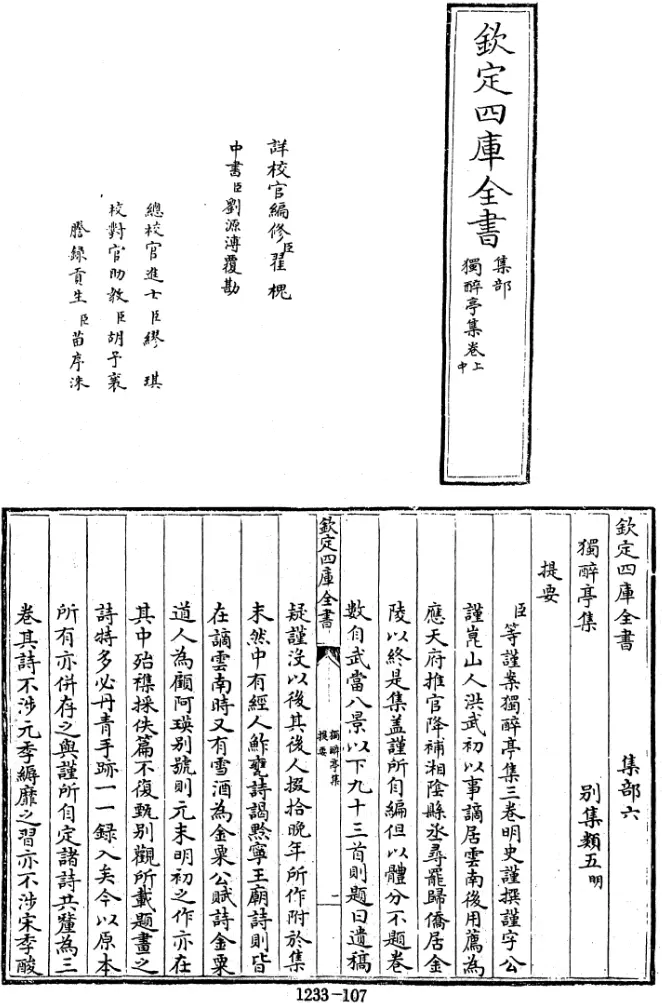 欽定四庫全書
集部
獨醉亭集卷上
中
詳校官編修臣翟槐
中書臣劉源溥覆勘
總校官進士臣繆琪
校對官助教臣胡予襄
謄錄貢生臣苗序洙
欽定四庫全書 集部六
獨醉亭集 別集類五明
提要
臣等謹案獨醉亭集三卷明史謹撰謹字公
謹崑山人洪武初以事謫居雲南後用薦為
應天府推官降補湘陰縣丞尋罷歸僑居金
陵以終是集蓋謹所自編但以體分不題卷
數自武當八景以下九十三首則題曰遺稿
欽定四庫全書
獨醉亭集
提要
一
疑謹沒以後其後人掇拾晚年所作附於集
末然中有經人鮓甕詩謁黔寧王廟詩則皆
在謫雲南時又有雪酒為金粟公賦詩金粟
道人為顧阿瑛別號則元末明初之作亦在
其中殆襍採佚篇不復甄別觀所載題畫之
詩特多必丹青手跡一一錄入矣今以原本
所有亦併存之與謹所自定諸詩共釐為三
卷其詩不涉元季縟靡之習亦不涉宋季酸
1233-107